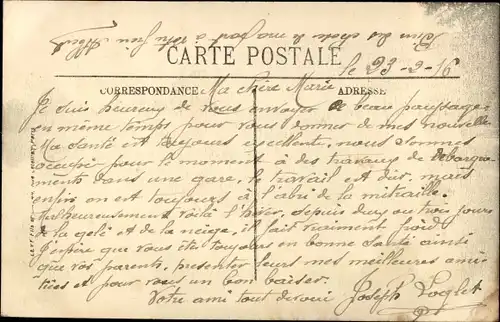 Bien des choses de ma part à votre frère Albert
CARTE POSTALE
le 23-2-16
CORRESPONDANCE Ma chère Marie ADRESSE
Je suis heureux de vous envoyer ce beau paysage
en même temps pour vous donner de mes nouvelles
Ma santé est toujours excellente, nous sommes
occupés pour le moment à des travaux de débarque
ments dans une gare, le travail est dur, mais
enfin on est toujours à l'abri de la mitraille.
Malheureusement voilà l'hiver, depuis deux ou trois jours
de la gelé et de la neige, il fait vraiment froid
J'espère que vous ête toujours en bonne santé ainsi
que vos parents, presenter leurs mes meilleures ami-
tiées et pour vous un bon baiser.
Votre ami tout devoué Joseph